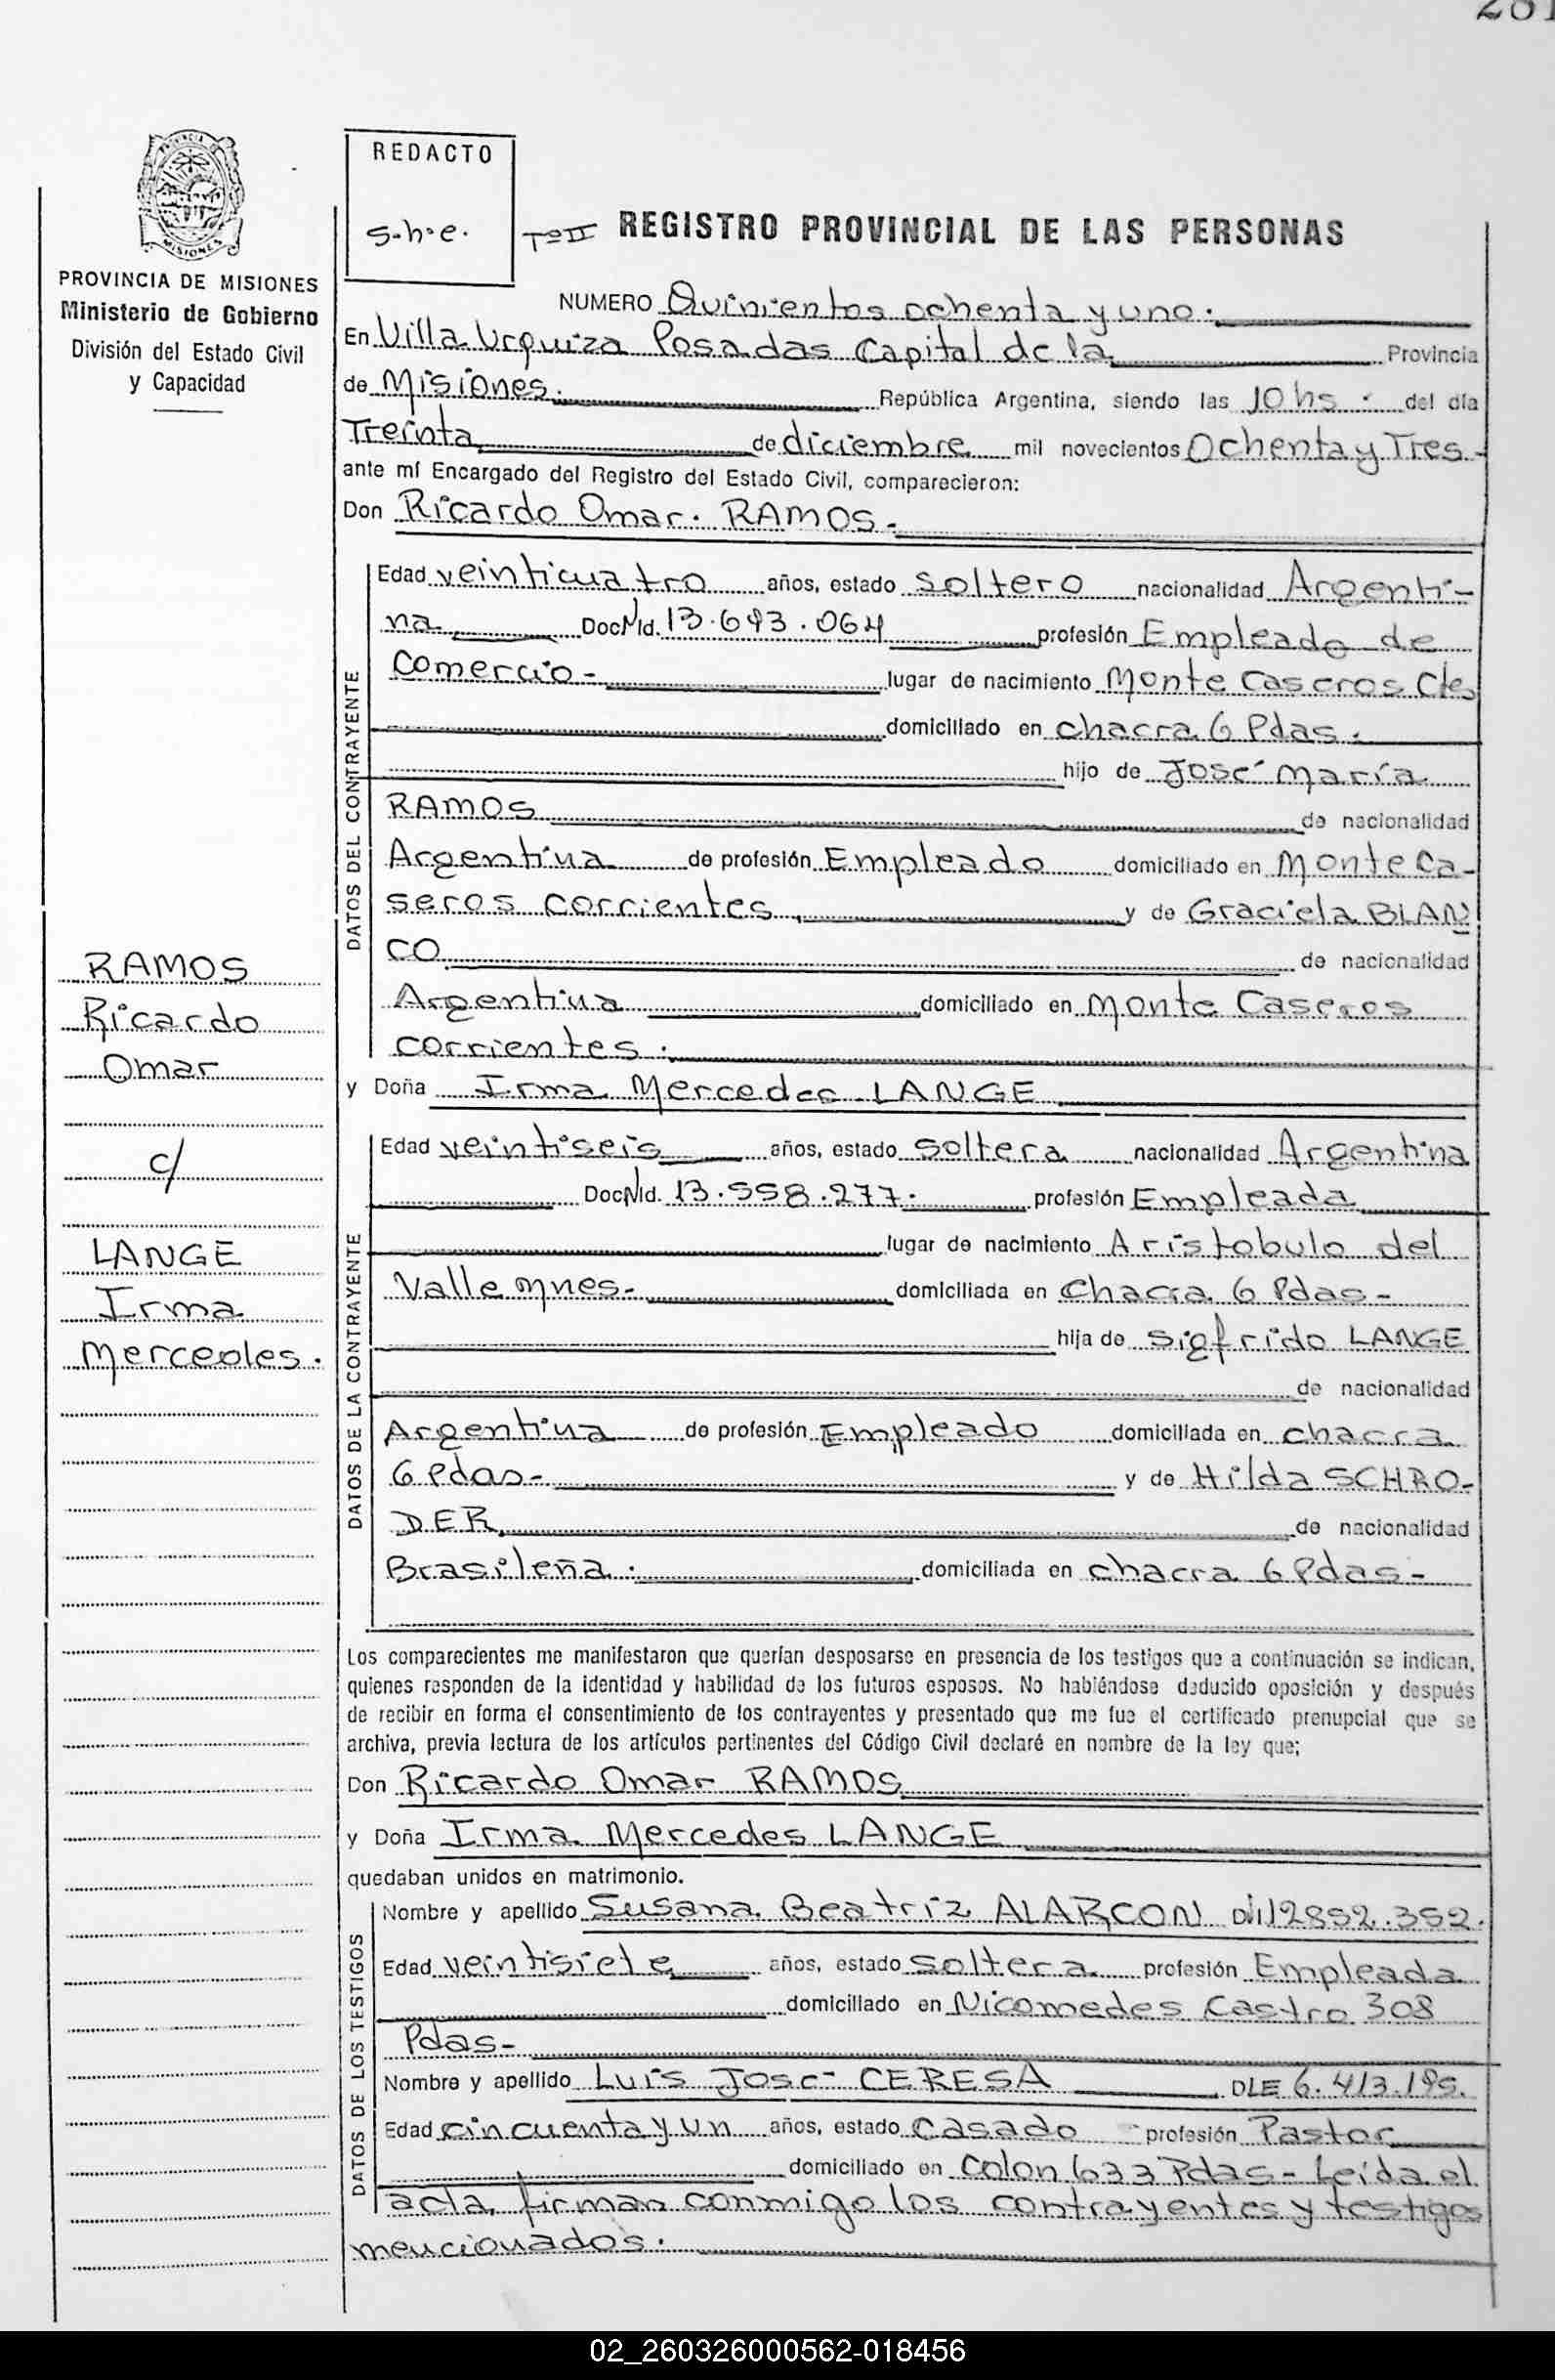 281
REDACTO
S.h.e.
Tº II REGISTRO PROVINCIAL DE LAS PERSONAS
PROVINCIA DE MISIONES
Ministerio de Gobierno
División del Estado Civil
y Capacidad
NUMERO Quinientos ochenta y uno.
En Villa Urquiza Posadas Capital de la Provincia
de Misiones. República Argentina, siendo las 10 hs. del día
Treinta de diciembre mil novecientos Ochenta y Tres.
ante mí Encargado del Registro del Estado Civil, comparecieron:
Don Ricardo Omar. RAMOS.
DATOS DEL CONTRAYENTE
Edad veinticuatro años, estado soltero nacionalidad Argenti-
na DocNId. 13.643.064 profesión Empleado de
Comercio- lugar de nacimiento Monte Caseros Ctes
domiciliado en chacra 6 Pdas.
hijo de José María
RAMOS de nacionalidad
Argentina de profesión Empleado domiciliado en Monte Ca-
seros corrientes, y de Graciela BLAN
CO de nacionalidad
Argentina domiciliado en Monte Caseros
corrientes.
y Doña Irma Mercedes LANGE
DATOS DE LA CONTRAYENTE
Edad veintiseis años, estado soltera nacionalidad Argentina
DocNId. 13.558.277. profesión Empleada
lugar de nacimiento Aristobulo del
Valle Mnes- domiciliada en Chacra 6 Pdas-
hija de Sigfrido LANGE
de nacionalidad
Argentina de profesión Empleado domiciliada en chacra
6 Pdas- y de Hilda SCHRO-
DER de nacionalidad
Brasileña. domiciliada en chacra 6 Pdas-
RAMOS
Ricardo
Omar
c/
LANGE
Irma
Mercedes.
Los comparecientes me manifestaron que querían desposarse en presencia de los testigos que a continuación se indican,
quienes responden de la identidad y habilidad de los futuros esposos. No habiéndose deducido oposición y después
de recibir en forma el consentimiento de los contrayentes y presentado que me fue el certificado prenupcial que se
archiva, previa lectura de los artículos pertinentes del Código Civil declaré en nombre de la ley que;
Don Ricardo Omar RAMOS
y Doña Irma Mercedes LANGE
quedaban unidos en matrimonio.
DATOS DE LOS TESTIGOS
Nombre y apellido Susana Beatriz ALARCON DNI 12852.352.
Edad veintisiete años, estado soltera profesión Empleada
domiciliado en Nicomedes Castro 308
Pdas-
Nombre y apellido Luis José CERESA DLE 6.413.195.
Edad cincuenta y un años, estado Casado profesión Pastor
domiciliado en Colon 633 Pdas- Leída el
acta, firman conmigo los contrayentes y testigos
mencionados.
02_260326000562-018456